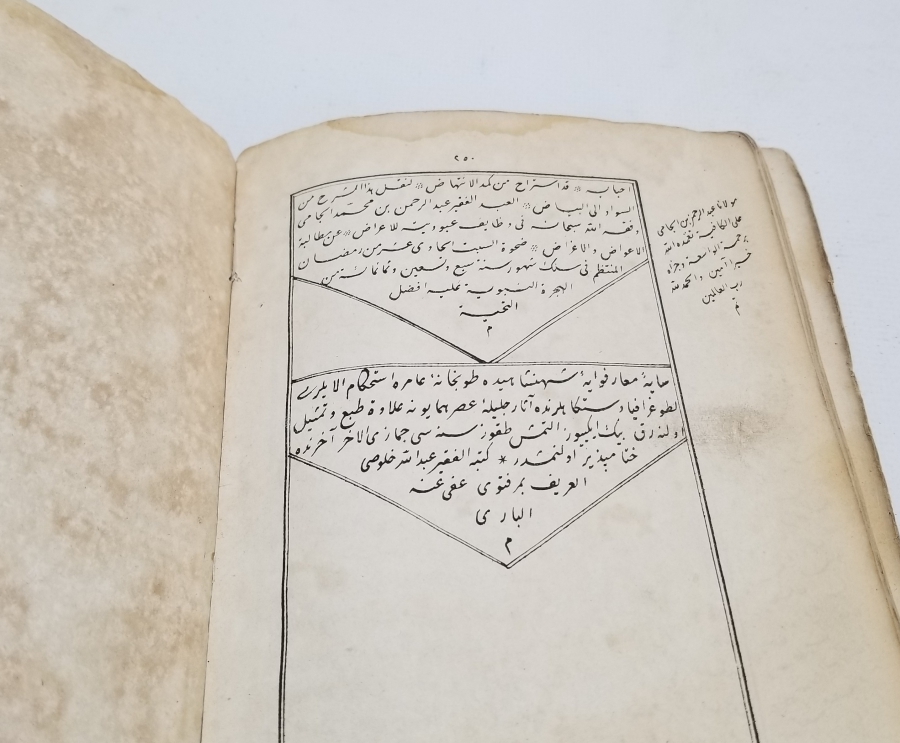 ٢٥٠
احباب * قد استراح من كد الانتهاض * لنقل هذا الشرح من
السواد الى البياض * العبد الفقير عبد الرحمن بن محمد الجامى
وفقه الله سبحانه فى وظايف عبوديته للاعراض * عن مطالبة
الاعواض والاغراض * ضحوة السبت الحادى عشر من رمضان
المنتظم فى سلك شهور سنة سبع وتسعين وثمانمائة من
الهجرة النبوية عليه افضل
التحية
م
سايۀ معارفوايۀ شهنشاهيده طوپخانۀ عامره استحكام الايلرى
لطوغرافيا دستكاهلرنده آثار جليلۀ عصر همايونه علاوة طبع وتمثيل
اولنه رق بيك ايكيوز التمش طقوز سنه سى جمازى الاخر آخرنده
ختامپذير اولنمشدر * كتبه الفقير عبد الله خلوصى
العريف
عفى عنه
البارى
م
مولانا عبد الرحمن الجامى
على الكافية تغمده الله
برحمته الواسعة وجزاه
خيرا آمين والحمد لله
رب العالمين
تم